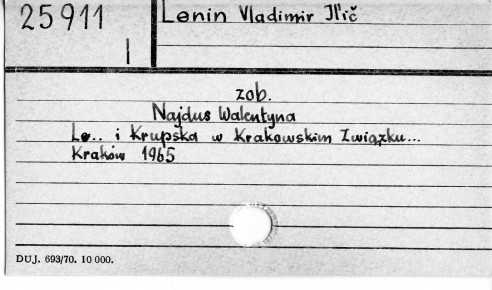 25911
I
Lenin Vladimir Il'ič
zob.
Najdus Walentyna
Le.. i Krupska w Krakowskim Związku...
Kraków 1965
DUJ. 693/70. 10 000.